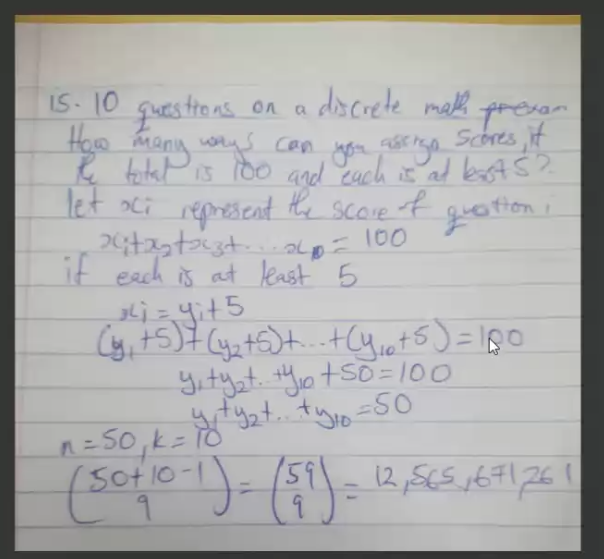 15. 10 questions on a discrete math exam
How many ways can you assign scores, if
the total is 100 and each is at least 5?
let xi represent the score of question i
x1+x2+x3+...x10 = 100
if each is at least 5
xi = yi+5
(y1+5)+(y2+5)+...+(y10+5)=100
y1+y2+..+y10+50=100
y1+y2+...+y10=50
n=50, k=10
(50+10-1 9) = (59 9) = 12,565,671,261